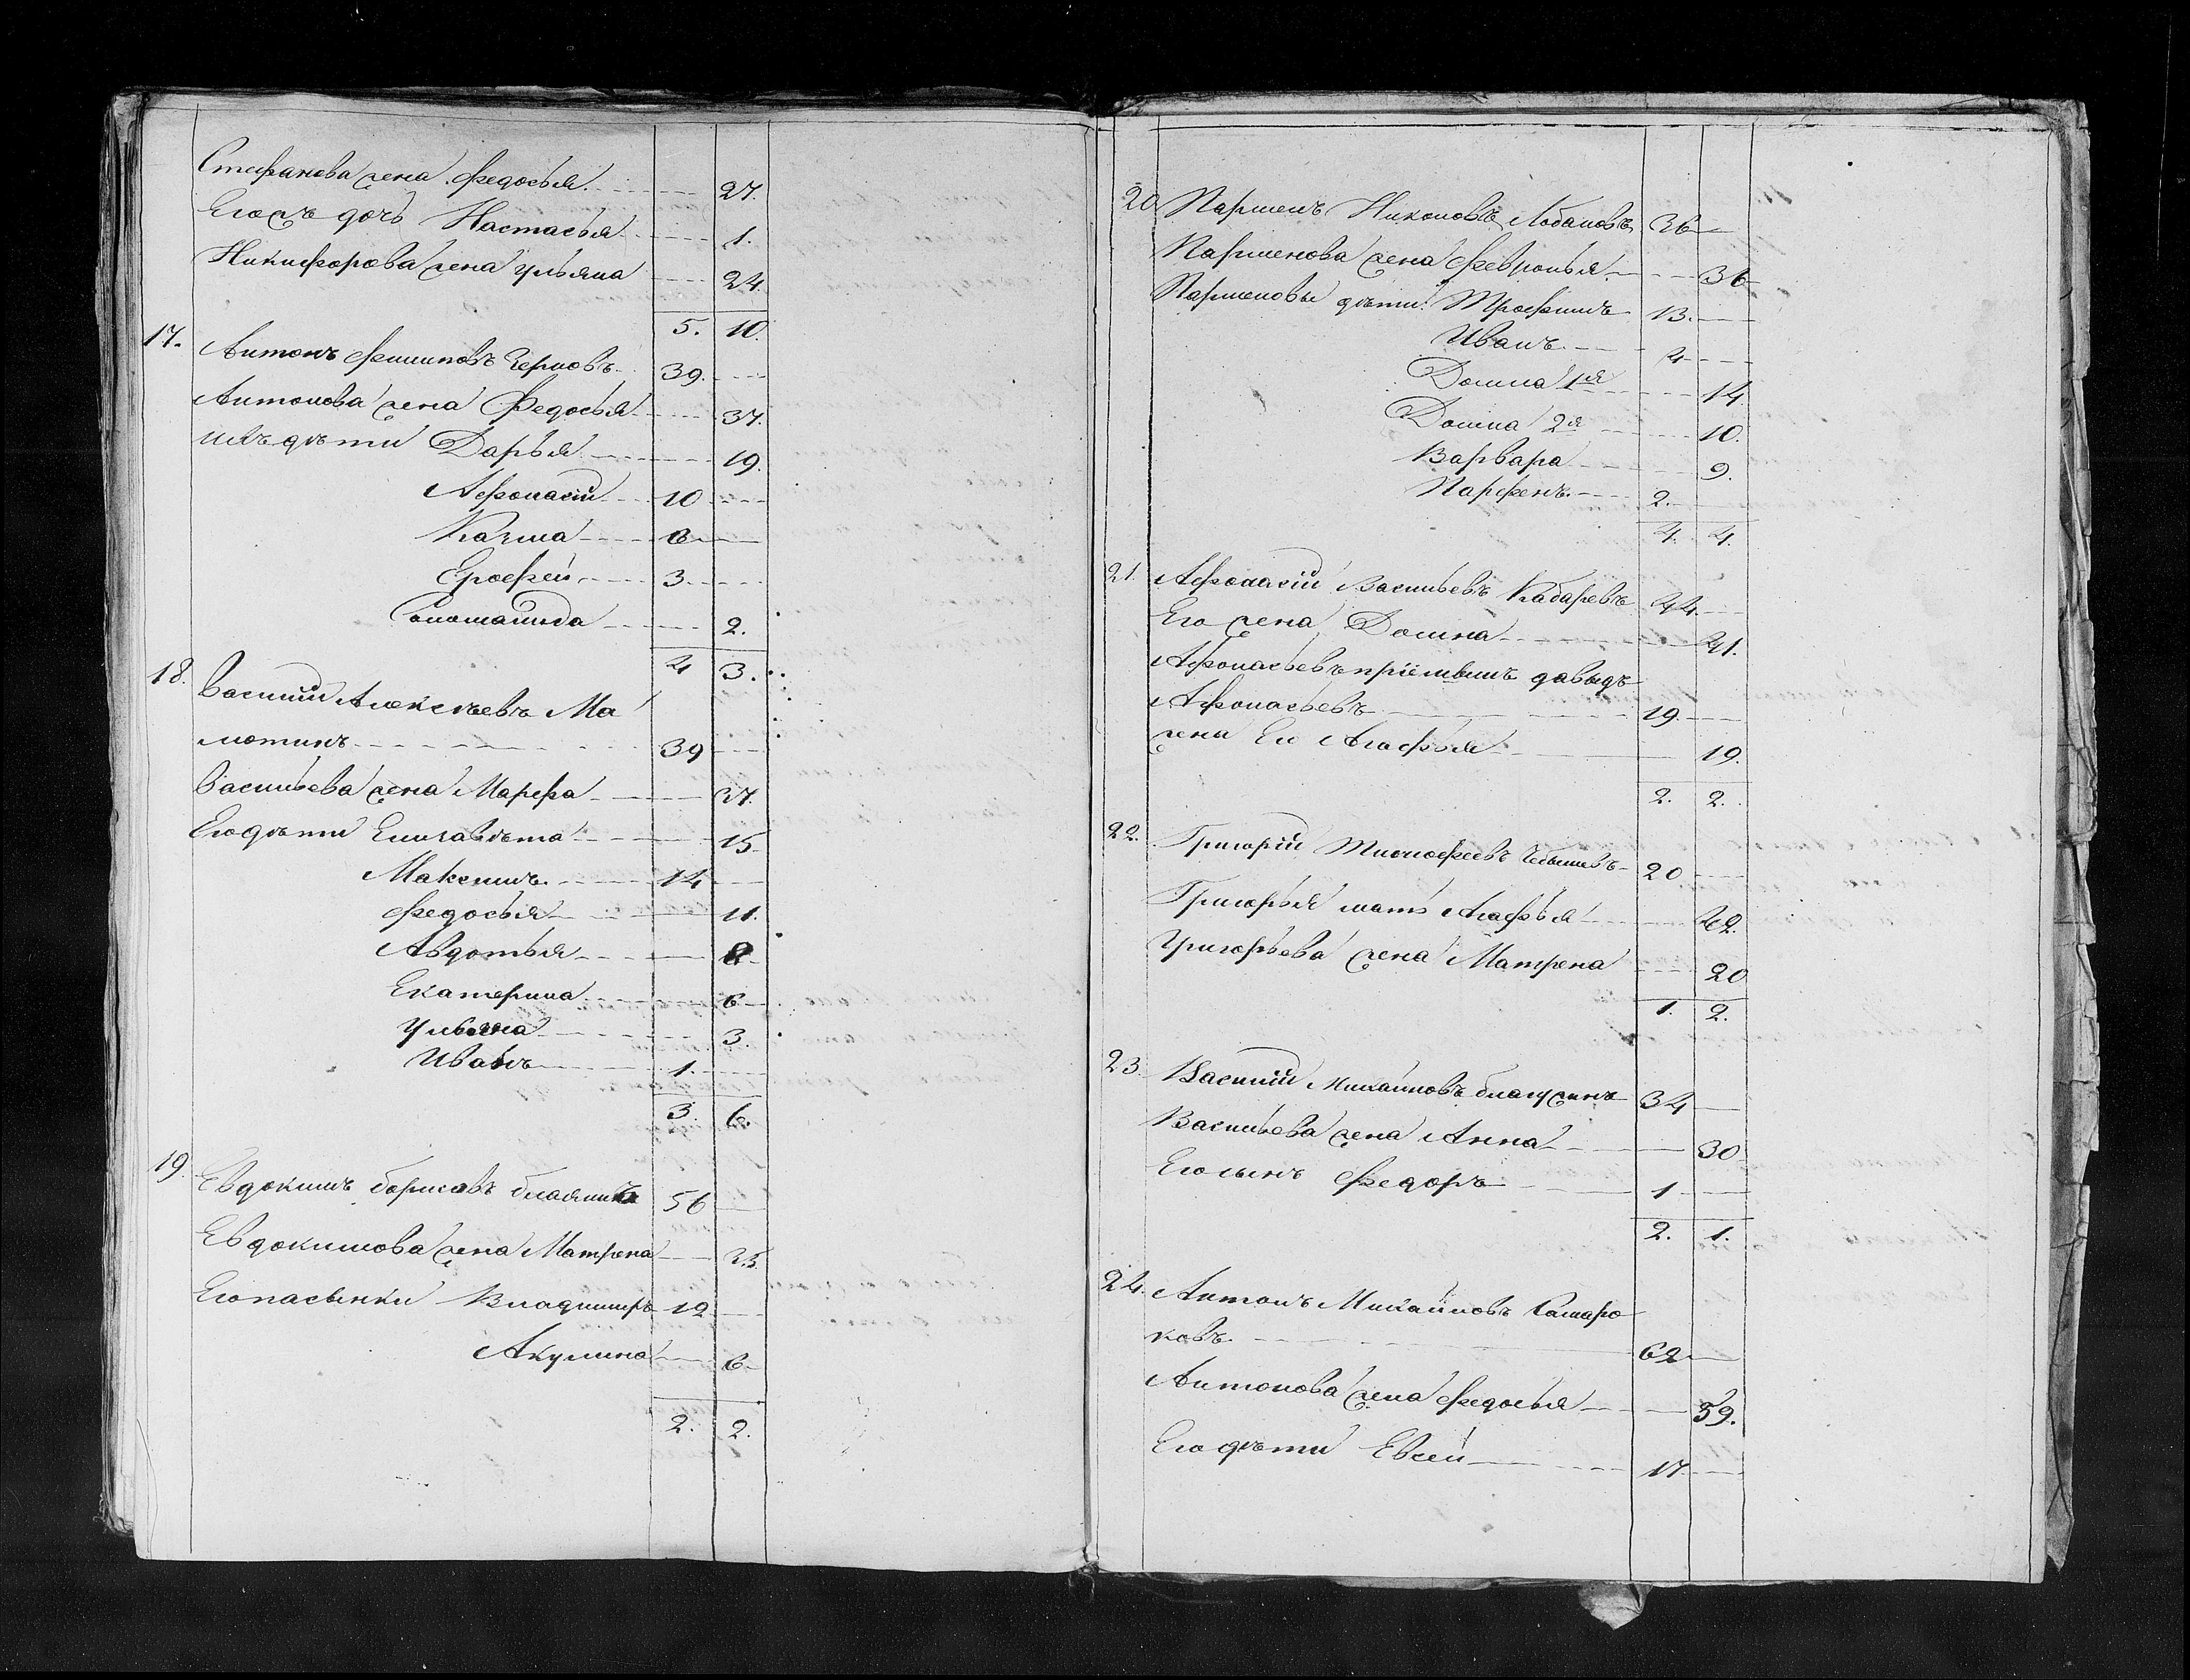 Стефанова жена Федосья 27.
Егожъ дочь Настасья 1.
Никифорова жена Ульяна 24.
5. 10.
17. Антонъ Филиповъ Черновъ 39.
Антонова жена Федосья 37.
ихъ дѣти Дарья 19.
Афонасій 10
Казма 6
Ерофей 3.
Соломанида 2.
4 3.
18. Василій Алексѣевъ Ма
мотинъ 39
Васильева жена Марфа 37.
Его дѣти Елизавѣта 15
Максимъ 14
Федосья 11.
Авдотья 8
Екатерина 6
Ульяна 3.
Иванъ 1.
3. 6.
19. Евдокимъ Борисовъ 56
Евдокимова жена Матрена 35.
Его пасынки Владимиръ 12
Акулина 6
2. 2.
20 Парменъ Никоновъ Лобановъ 36
Парменова жена Февронья 36
Парменовы дѣти Трофимъ 13.
Иванъ 4
Домна 1я 14.
Домна 2я 10.
Варвара 9.
Парфенъ 2.
4. 4.
21. Афонасій Васильевъ Кабаревъ 44.
Его жена Домна 41.
Афонасьевъ пріемышъ давыдъ
Афонасьевъ 19.
жена Ег Агафья 19.
2. 2.
22. Григорій Тимофеевъ Чебышевъ 20
Григорья мать Агафья 42.
Григорьева жена Матрена 20
1. 2.
23. Василій Михайловъ 34
Васильева жена Анна 30
Его сынъ Федоръ 1
2. 1.
24. Антонъ Михайловъ Самаро
ковъ 62
Антонова жена Федосья 59.
Его дѣти Евсей 17